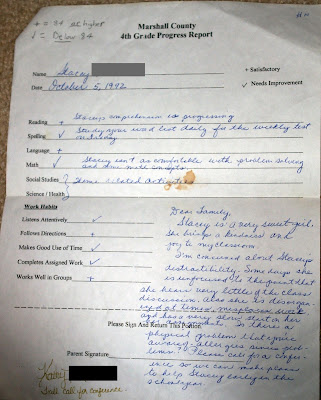 + = 84 or higher
✓ = Below 84
Marshall County
4th Grade Progress Report
Name Stacey
+ Satisfactory
Date October 5, 1992
✓ Needs Improvement
Reading + Stacey's comprehension is progressing
Spelling ✓ Study your word list daily for the weekly test
on Friday
Language +
Math ✓ Stacey isn't as comfortable with problem solving
and
Social Studies
Science / Health
Theme related activities
Work Habits
Listens Attentively ✓
Follows Directions +
Makes Good Use of Time ✓
Completes Assigned Work ✓
Works Well in Groups +
Dear Family,
Stacey is a very sweet girl.
She brings a kindness and
joy to my classroom.
I'm concerned about Stacey's
distractibility. Some days she
is unfocused to the point that
she hears very little of the class
discussion. Also she is disorgan-
ized at times, misplaces work
and has a very short attention
for assignments. Is there a
physical problem that you're
aware of - allergies sinus prob-
lems? Please call for a confer-
ence so we can make plans
to help Stacey early in the
school year.
Please Sign And Return This Portion
Parent Signature
Kacey
Still call for conference.